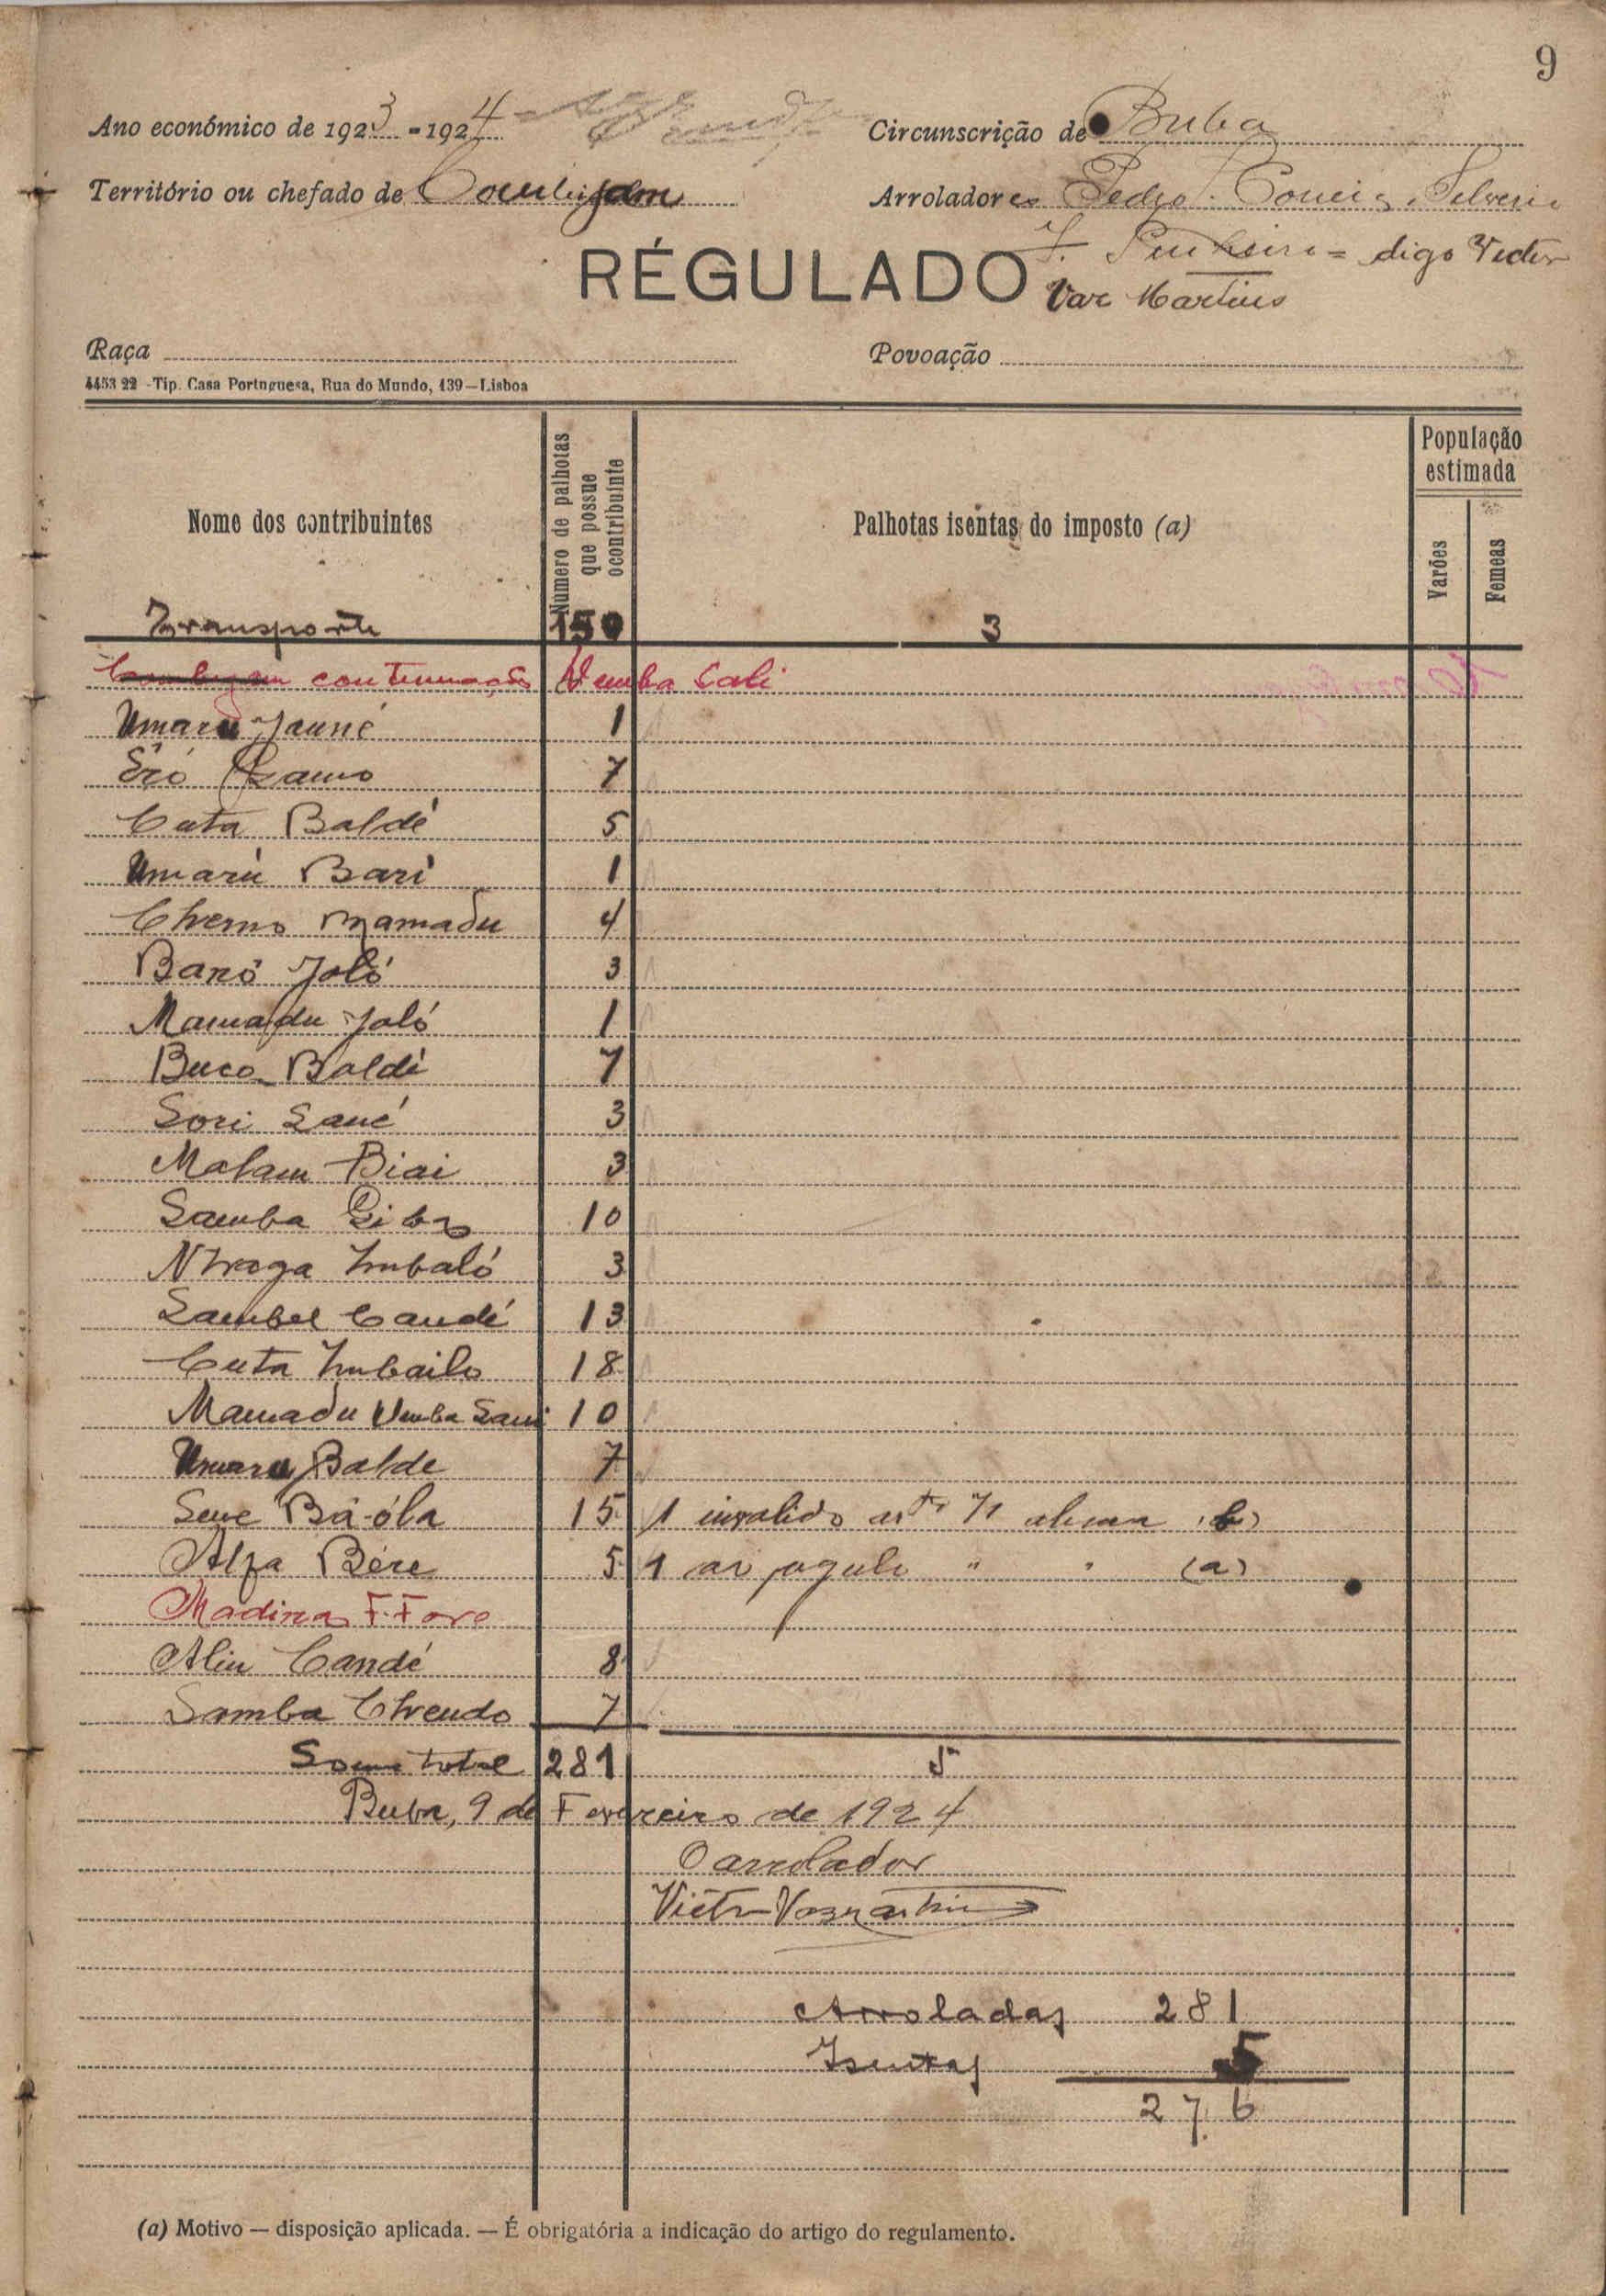 9
Ano económico de 1923 - 1924
Circunscrição de Buba
Território ou chefado de
Arroladores Pedro Silverio
J. Pinheiro = digo Victor
RÉGULADO Vaz Martins
Raça
Povoação
4453 22 - Tip. Casa Portuguesa, Rua do Mundo, 139 — Lisboa
Nome dos contribuintes
Número de palhotas que possue o contribuinte
Palhotas isentas do imposto (a)
População estimada
Varões
Femeas
Transporte 150 3
continuação Demba Cali
Umaru Jauné 1
Eró 7
Cuta Baldé 5
Umarú Bari 1
Cherno Mamadu 4
Baró Jaló 3
Mamadu Jaló 1
Buco Baldé 7
Sori Sané 3
Malam Biai 3
Samba 10
Imbaló 3
Sambel Candé 13
Cuta Imbailo 18
Mamadu Demba 10
Umaru Balde 7
15 1 invalido artº 71 alinea (b)
Alfa Bére 5 1 " " (a)
Madina F. Foro
Aliu Candé 8
Samba 7
Soma total 281 5
Buba, 9 de Fevereiro de 1924
O arrolador
Victor Vaz Martins
Arroladas 281
Isentas 5
276
(a) Motivo — disposição aplicada. — É obrigatória a indicação do artigo do regulamento.